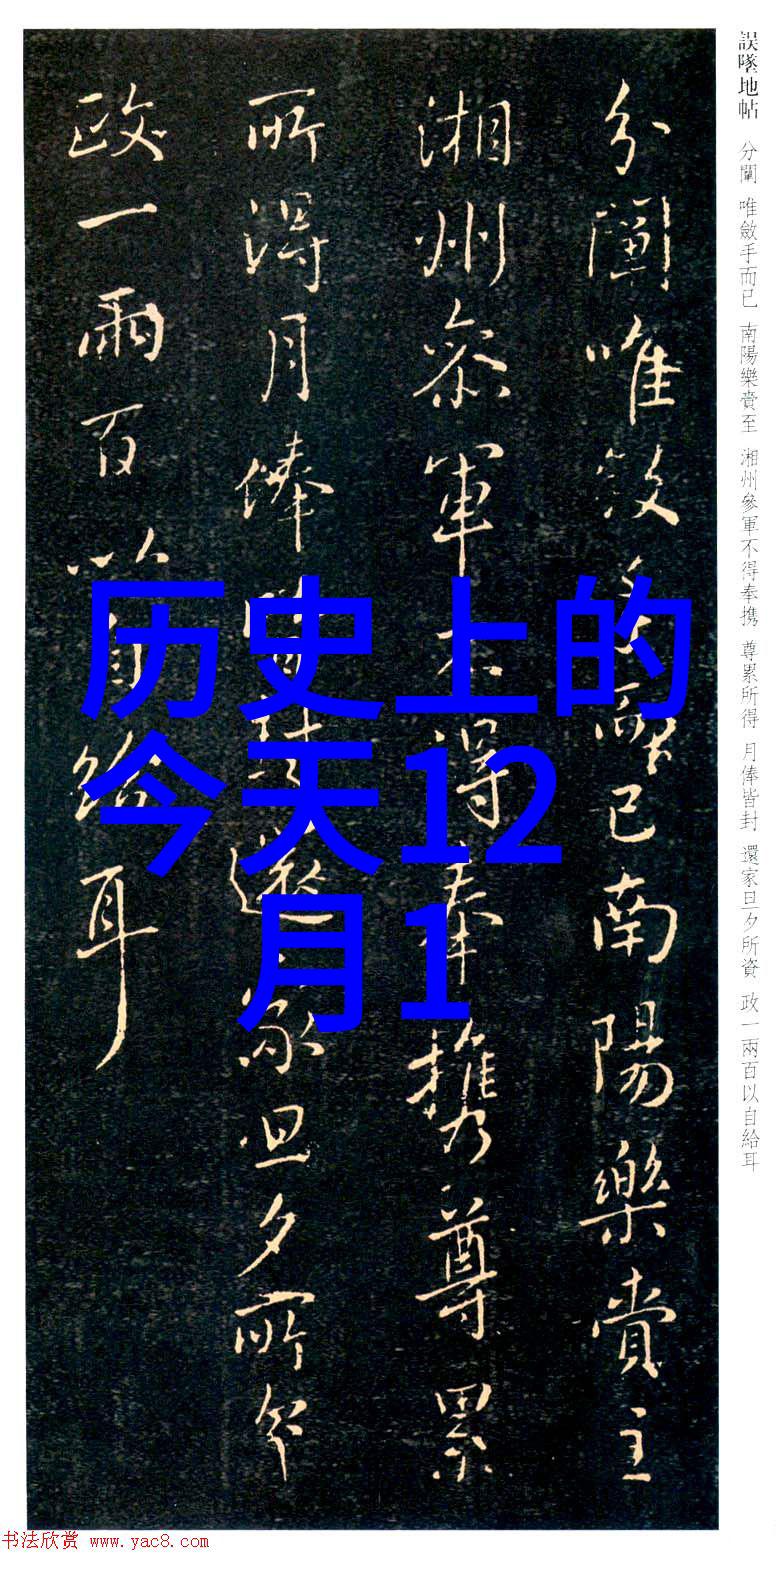 誤墜地帖 分闈 唯斂手而已 南陽樂賫至 湘州參軍不得奉攜 尊累所得 月俸皆封 還家旦夕所資 政一兩百以自給耳
分闈唯斂手而已南陽樂賫至
湘州參軍不得奉攜尊累
所得月俸皆封還家旦夕所資
政一兩百以自給耳
历史上的
今天12
月1
书法欣赏 www.yac8.com